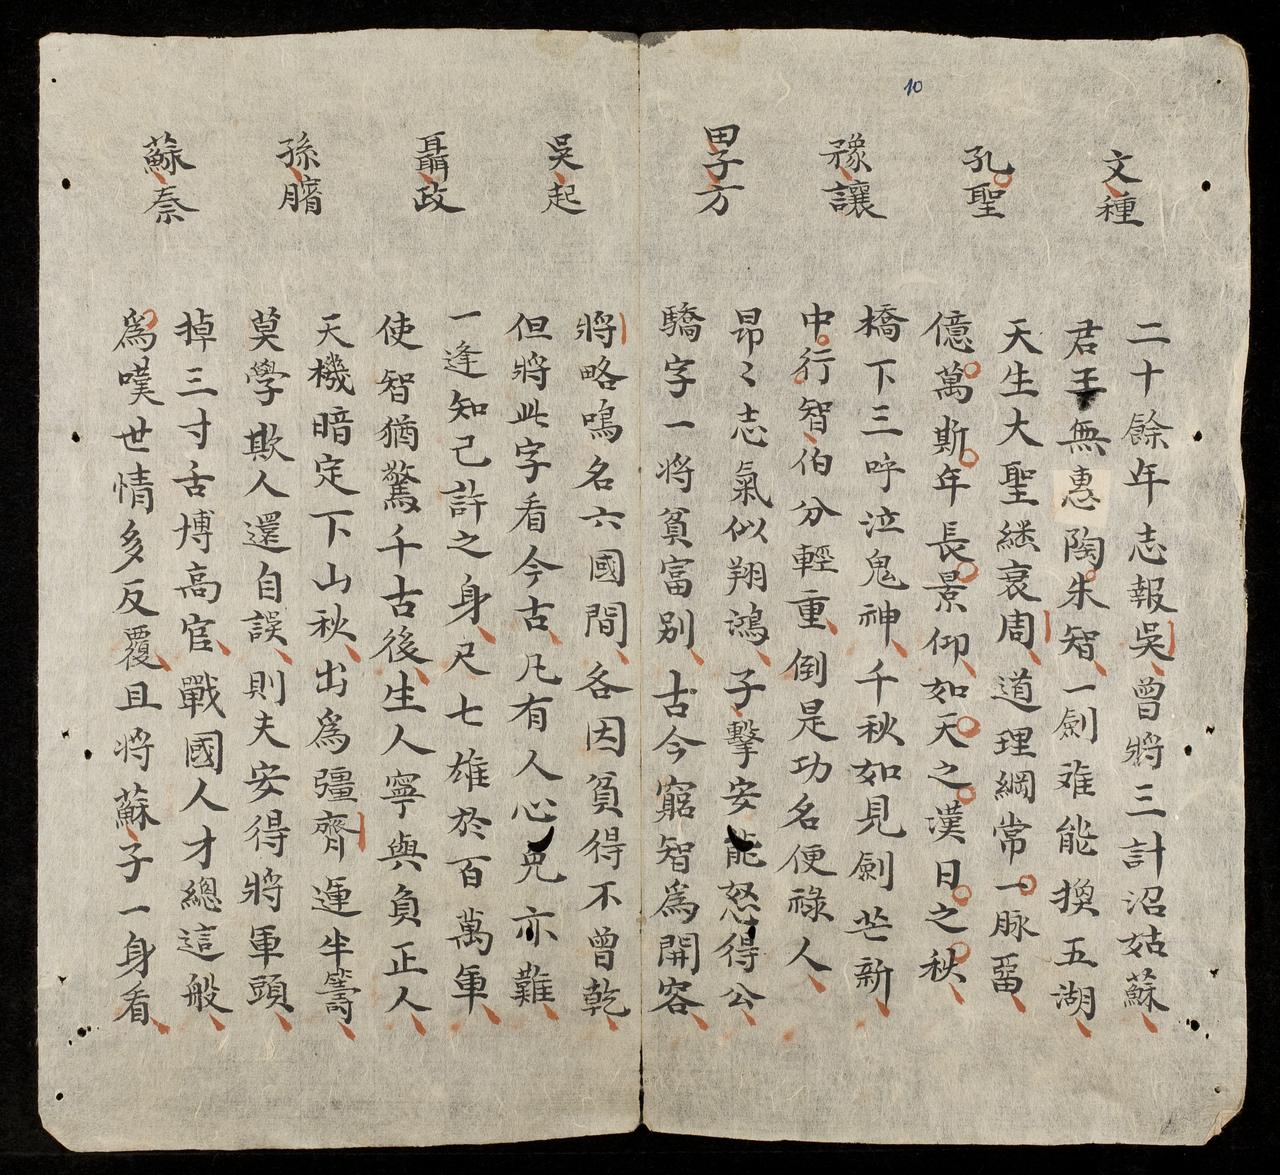 10
文種
二十餘年志報吳曾將三計沼姑蘇
君王無惠陶朱智一劍难能換五湖
孔聖
天生大聖繼衰周道理綱常一脉畱
億萬斯年長景仰如天之漢日之秋
豫讓
橋下三呼泣鬼神千秋如見劍芒新
中行智伯分輕重倒是功名便祿人
田子方
昂〻志氣似翔鴻子擊安能怒得公
驕字一将貧富別古今窮智爲開容
吳起
將略鳴名六國間各因貧得不曾乾
但將此字看今古凡有人心免亦難
聶政
一逢知己許之身尺七雄於百萬軍
使智猶驚千古後生人寧與負正人
孫臏
天機暗定下山秋出爲彊齊運半籌
莫學欺人還自誤則夫安得將軍頭
蘇秦
掉三寸舌博高官戰國人才總這般
爲嘆世情多反覆且將蘇子一身看